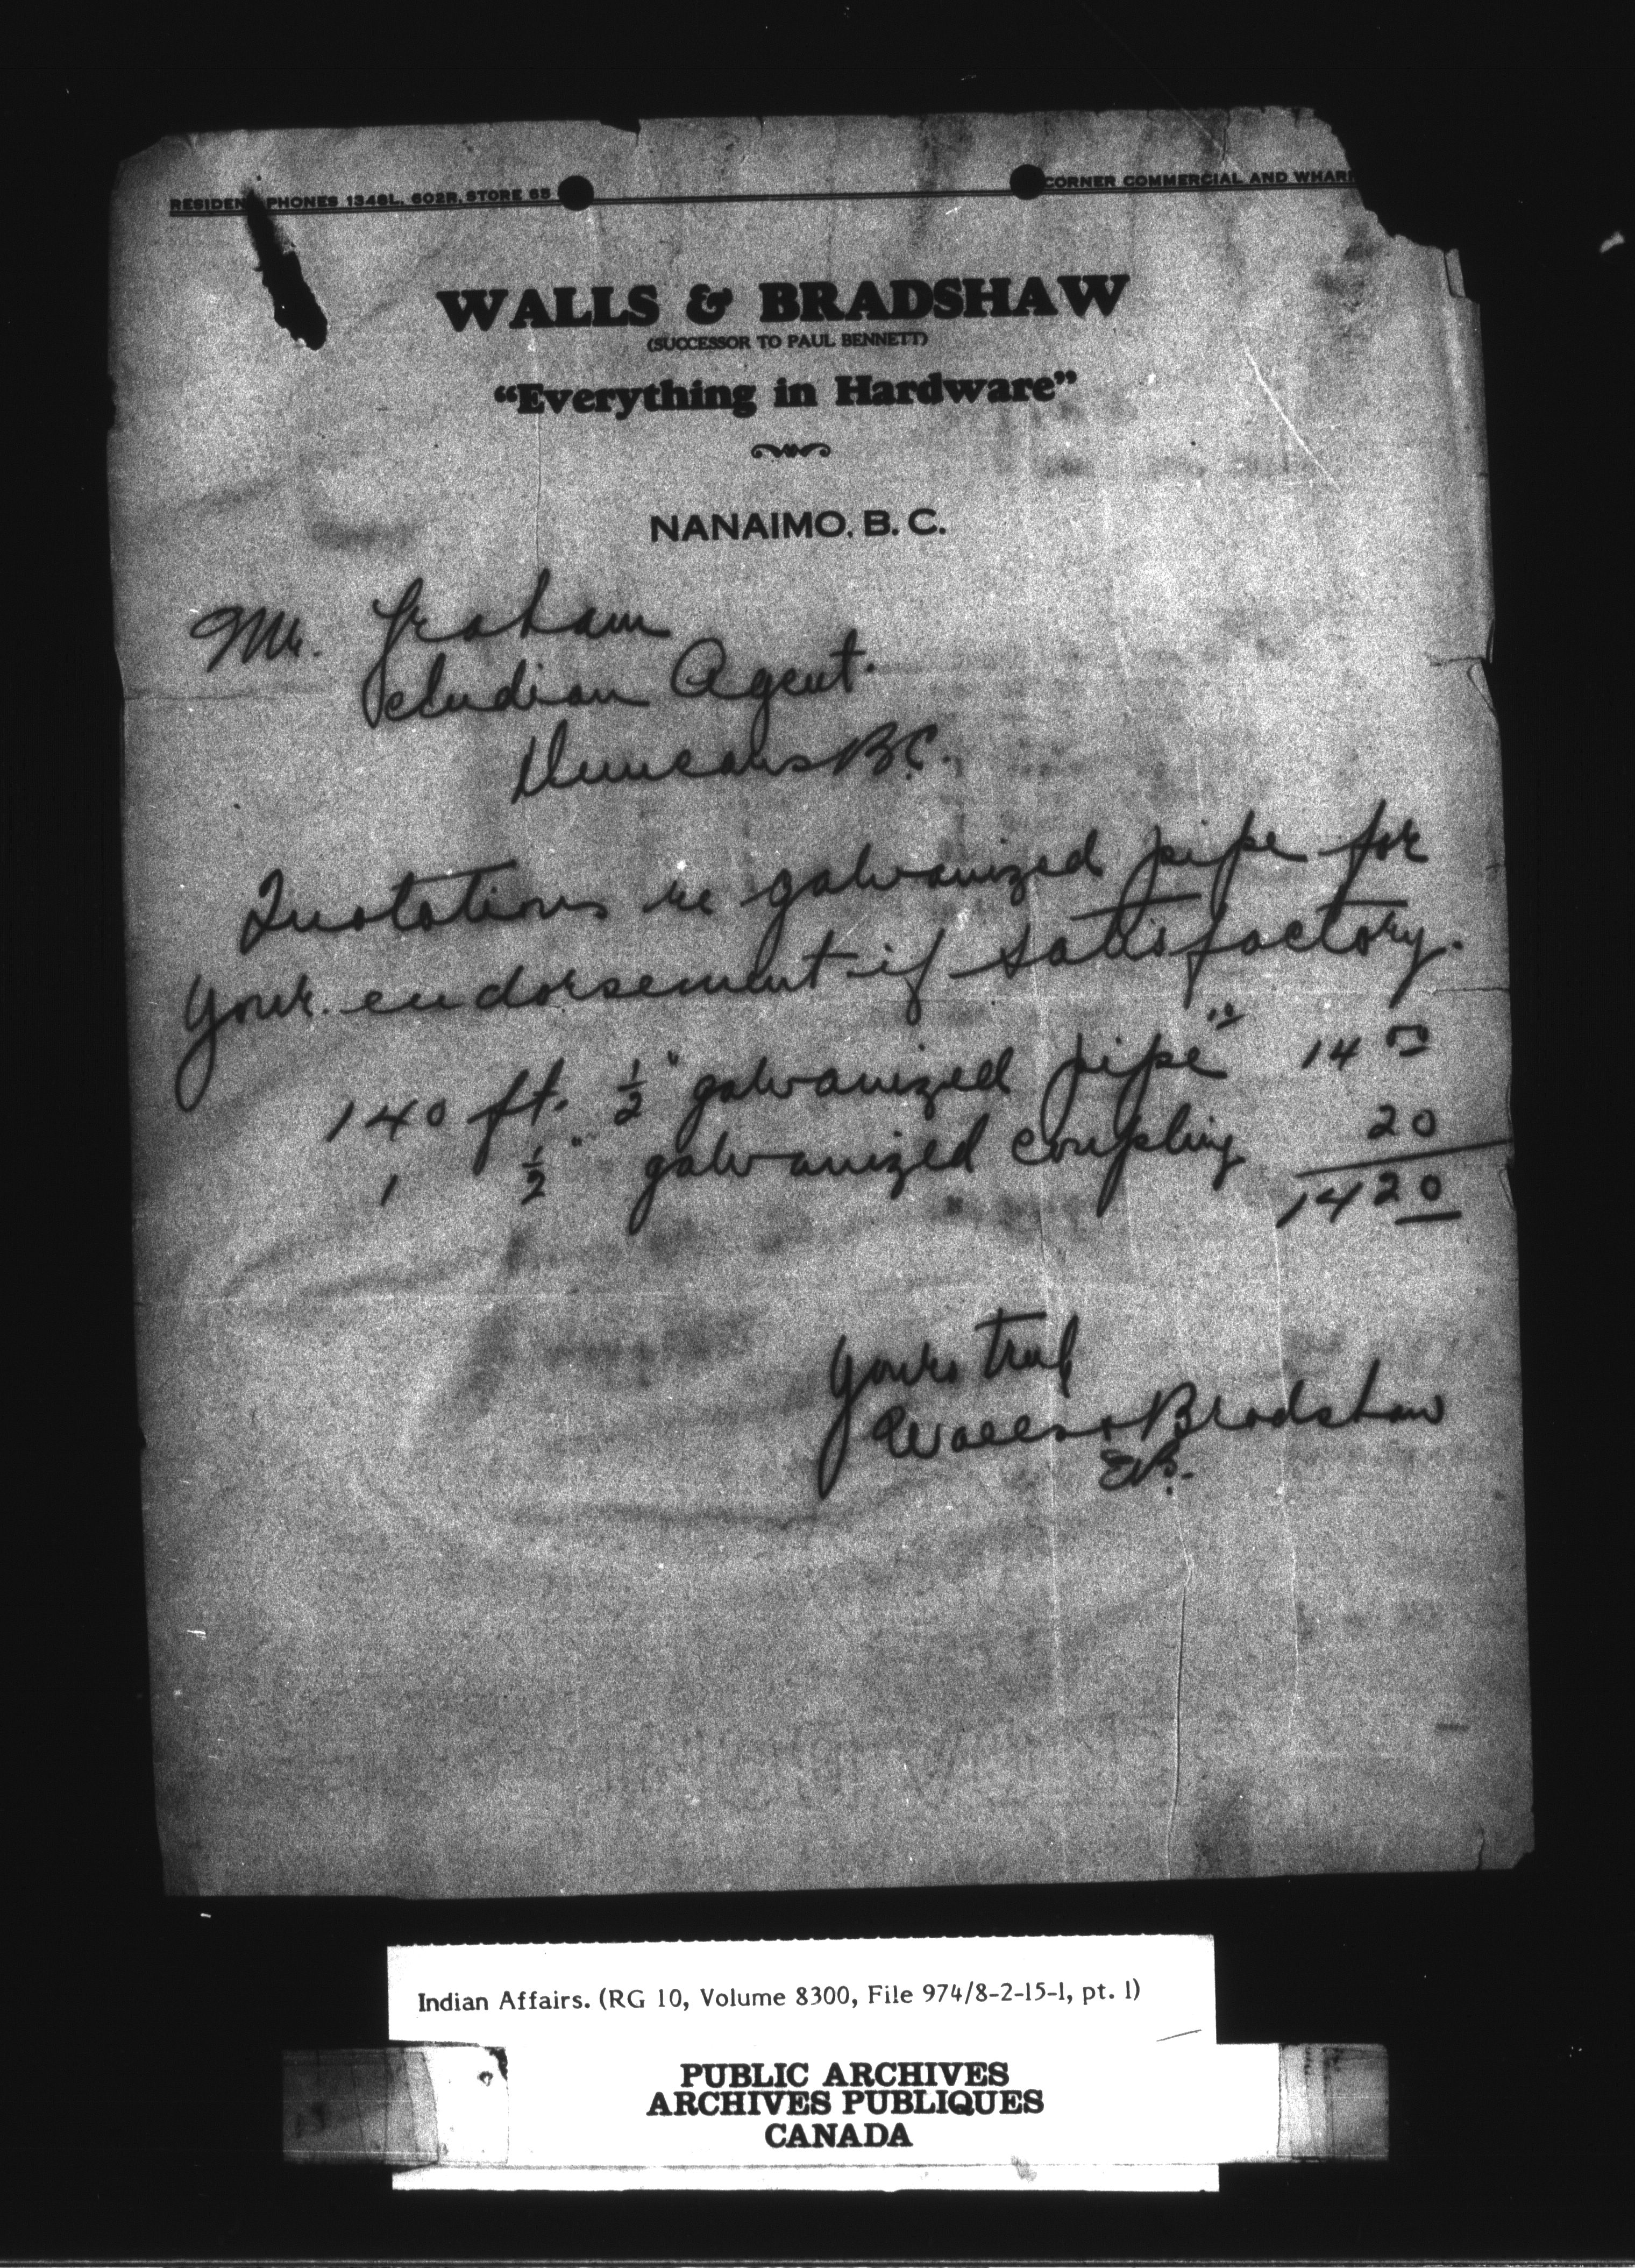 RESIDEN PHONES 1348L, 602R, STORE 65
CORNER COMMERCIAL AND WHARF
WALLS & BRADSHAW
(SUCCESSOR TO PAUL BENNETT)
“Everything in Hardware”
NANAIMO, B. C.
Mr. Graham
Indian Agent.
Duncans B.C.
Quotations re galvanized pipe for
your endorsement if satisfactory.
140 ft. ½" galvanized pipe .10 14 00
1 ½" galvanized coupling 20
14 20
Yours truly
Walls & Bradshaw
EB.
Indian Affairs. (RG 10, Volume 8300, File 974/8-2-15-1, pt. 1)
PUBLIC ARCHIVES
ARCHIVES PUBLIQUES
CANADA